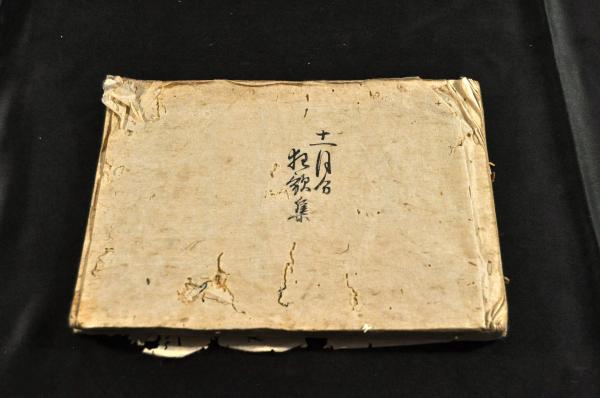 十二月分
狂歌集